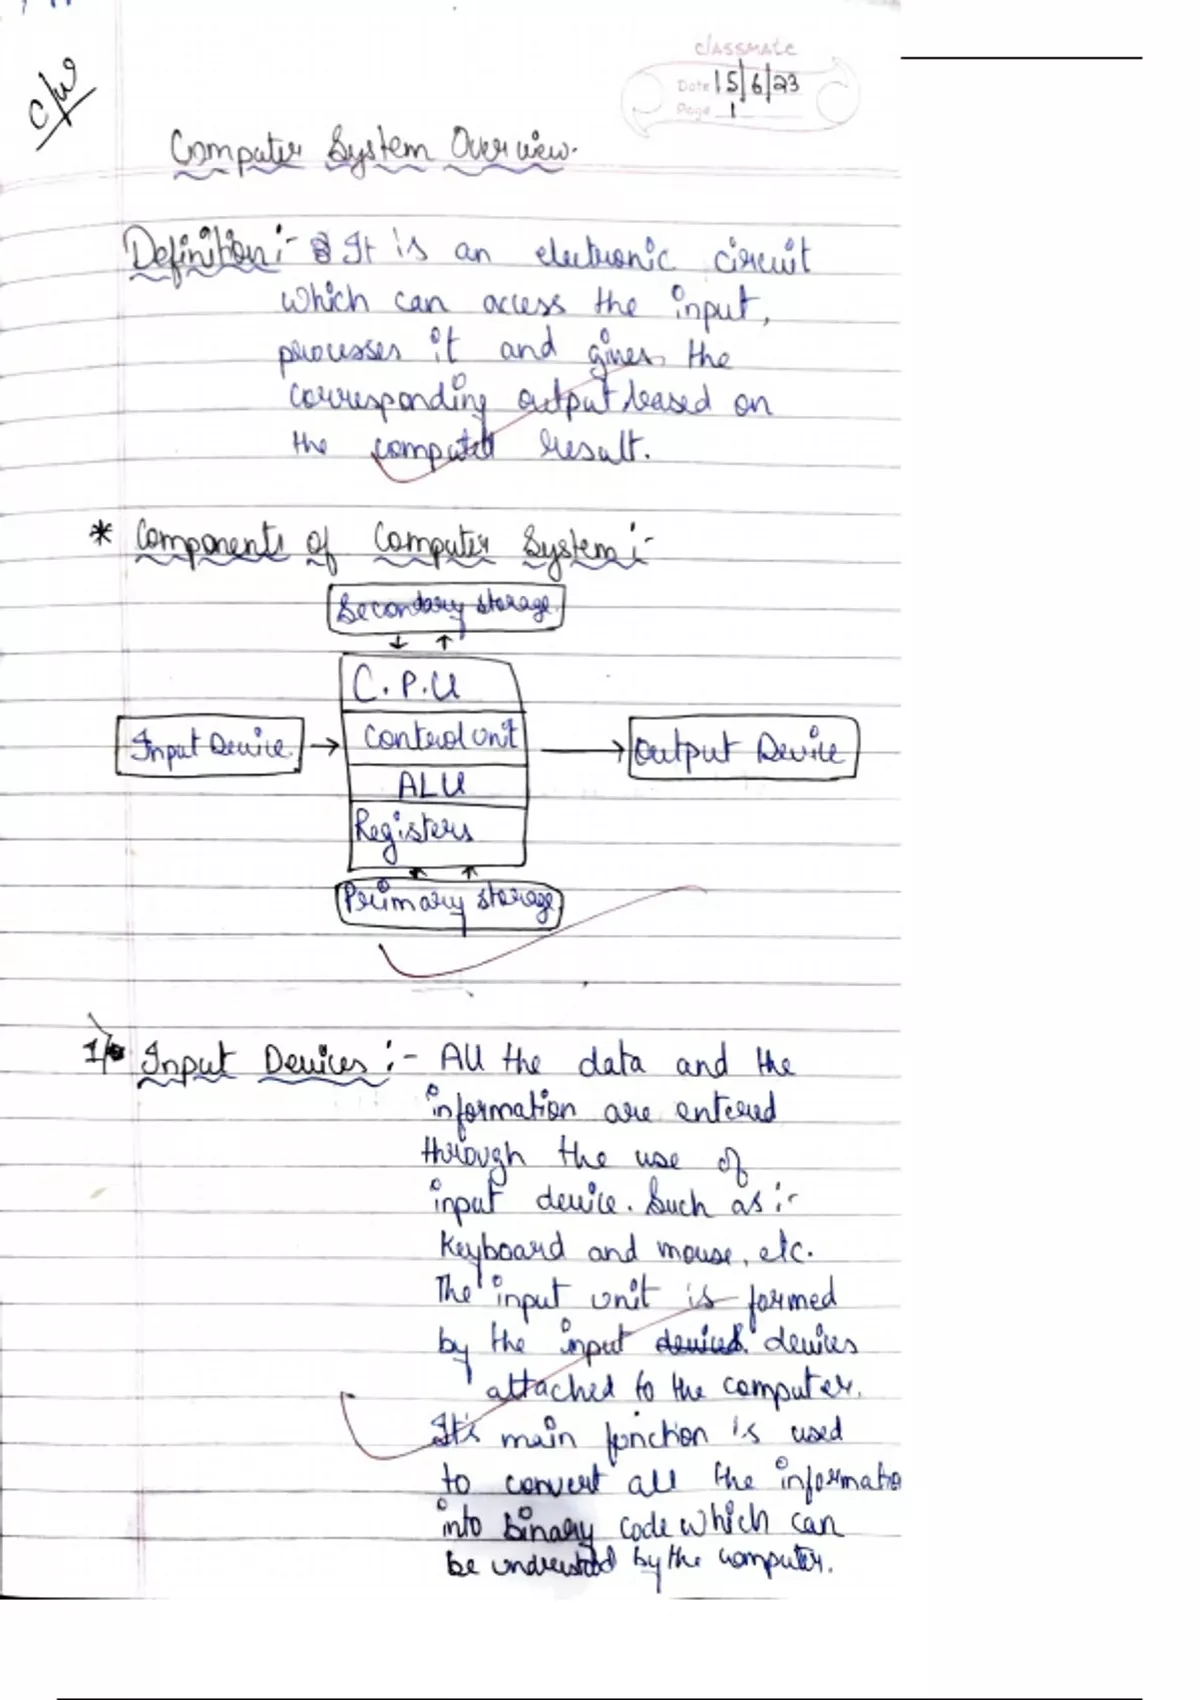 c/w
classmate
Date 15/6/23
Page 1
Computer System Overview.
Definition :- It is an electronic circuit
which can access the input,
processes it and gives the
corresponding output based on
the computed result.
* Components of Computer System :-
Secondary storage
↓ ↑
C.P.U
Input Device → Control Unit → Output Device
ALU
Registers
Primary storage
1 Input Devices :- All the data and the
information are entered
through the use of
input device. Such as :-
Keyboard and mouse, etc.
The input unit is formed
by the input devices
attached to the computer.
It's main function is used
to convert all the informatio
into binary code which can
be understood by the computer.